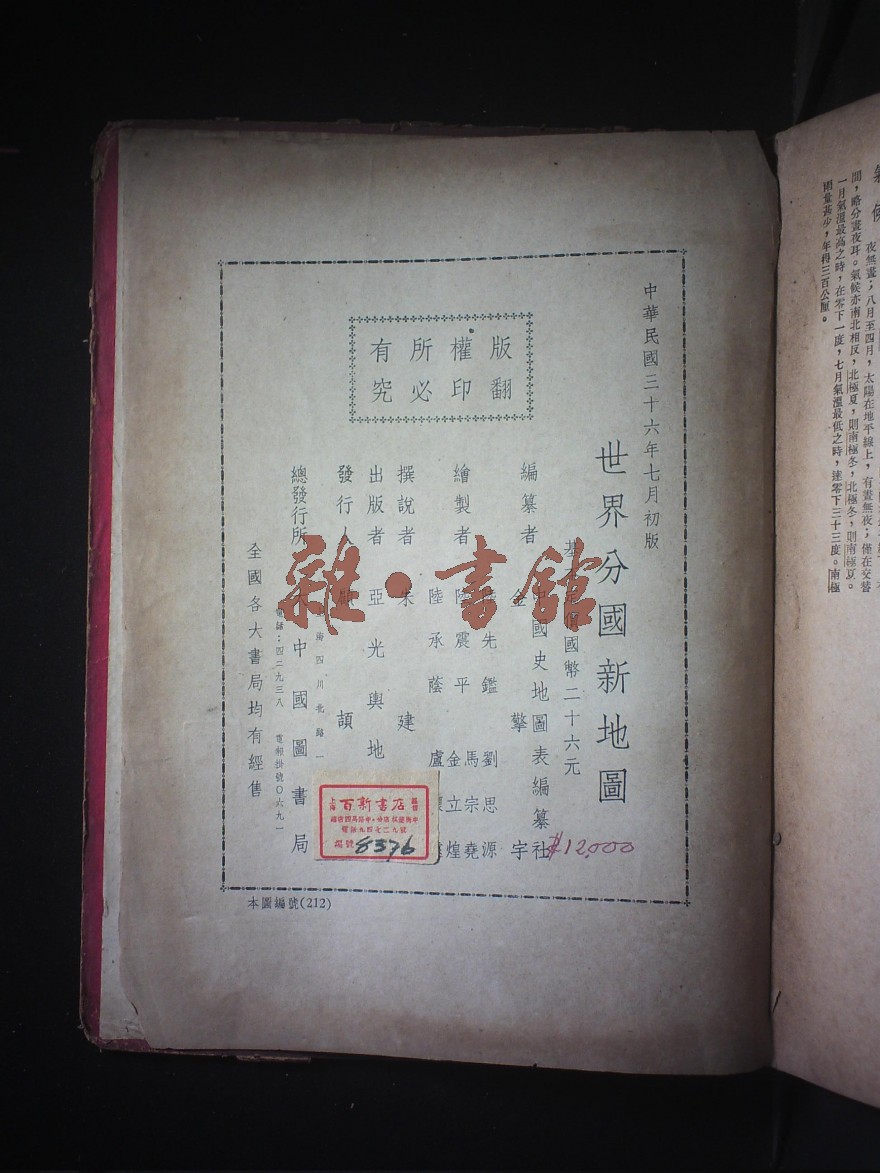 氣候
夜無晝；八月至四月，太陽在地平線上，有晝無夜；僅在交替
間，略分晝夜耳。氣候亦南北相反，北極夏，則南極冬，北極冬，則南極夏。
一月氣溫最高之時，在零下一度，七月氣溫最低之時，達零下三十三度。南極
雨量甚少，年得三百公厘。
中華民國三十六年七月初版
世界分國新地圖
國幣二十六元
編纂者
金擎宇
中國史地圖表編纂社
繪製者
先鑑 劉思源
陸震平 馬宗堯
陸承蔭 金立煌
盧
撰說者 朱建
出版者 亞光輿地
發行人 頡
總發行所 大中國圖書局
海四川北路
電話：四二九三八 電報掛號〇六九一
全國各大書局均有經售
版權所有
翻印必究
本圖編號(212)
$12,000
上海 百新書店
電話九四七二九號
編號 8376
雜·書館